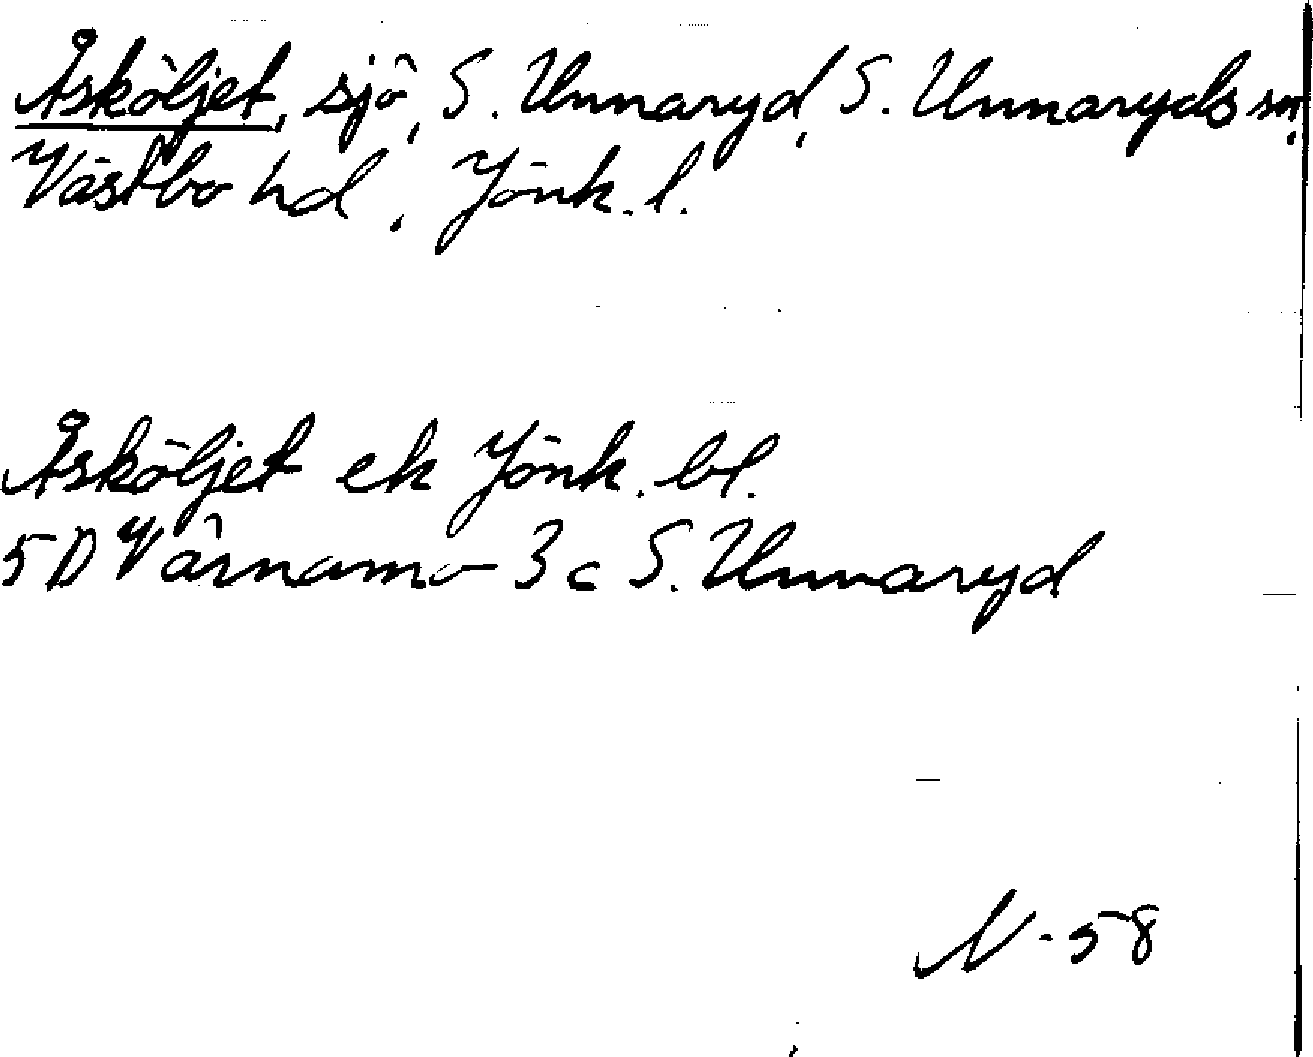 Åsköljet, sjö, S. Unnaryd, S. Unnaryds sn,
Västbo hd, Jönk. l.
Åsköljet ek Jönk. bl.
5D Värnamo 3c S. Unnaryd
N-58